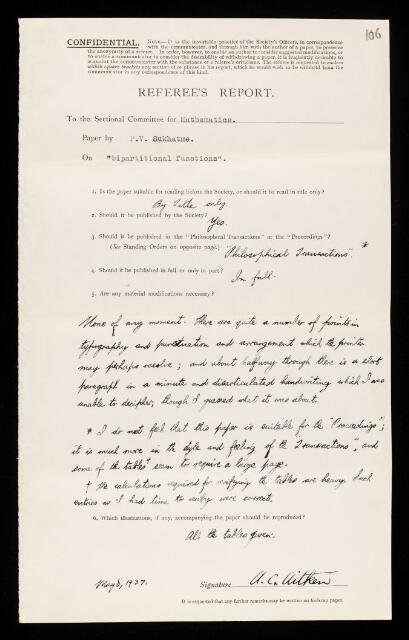 106
CONFIDENTIAL. NOTE—It is the invariable practice of the Society's Officers, in correspondence
with the communicator, and through him with the author of a paper, to preserve
the anonymity of a referee. In order, however, to enable an author to consider suggested modifications, or
to enable a communicator to consider the desirability of withdrawing a paper, it is frequently desirable to
acquaint the communicator with the substance of a referee's criticisms. The referee is requested to enclose
within square brackets any section of or phrase in his report, which he would wish to be withheld from the
communicator in any correspondence of this kind.
REFEREE'S REPORT.
To the Sectional Committee for Mathematics.
Paper by P.V. Sukhatme.
On "bipartitional functions".
1. Is the paper suitable for reading before the Society, or should it be read in title only?
By title only.
2. Should it be published by the Society?
Yes.
3. Should it be published in the "Philosophical Transactions" or the "Proceedings"?
(See Standing Orders on opposite page.) "Philosophical Transactions". *
4. Should it be published in full or only in part?
In full.
5. Are any material modifications necessary?
None of any moment. There are quite a number of points in
typography and punctuation and arrangement which the printer
may perhaps resolve; and about halfway through there is a short
paragraph in a minute and disarticulated handwriting which I was
unable to decipher, though I guessed what it was about.
* I do not feel that this paper is suitable for the "Proceedings";
it is much more in the style and feeling of the "Transactions", and
some of the tables† seem to require a large page.
† The calculations required for verifying the tables are heavy. Such
entries as I had time to verify were correct.
6. Which illustrations, if any, accompanying the paper should be reproduced?
All the tables given.
May 8, 1937. Signature A. C. Aitken
It is requested that any further remarks may be written on foolscap paper.